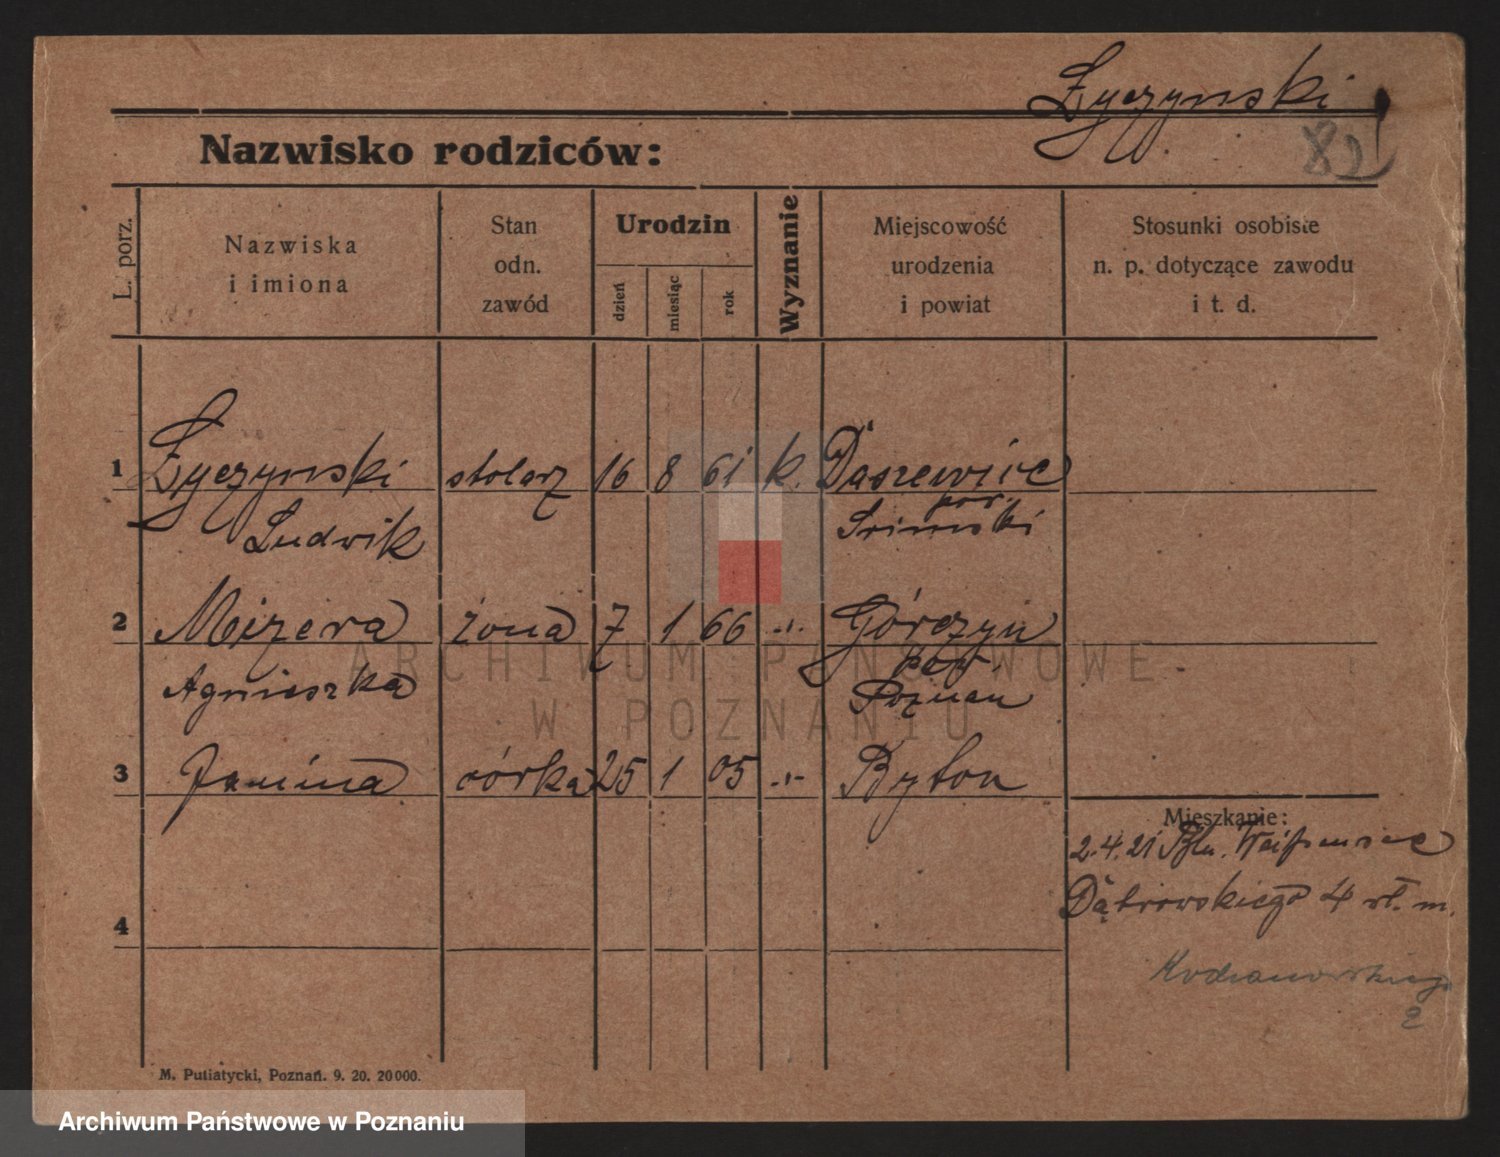 Życzynski
82
Nazwisko rodziców:
L. porz.
Nazwiska
i imiona
Stan
odn.
zawód
Urodzin
dzień
miesiąc
rok
Wyznanie
Miejscowość
urodzenia
i powiat
Stosunki osobiste
n. p. dotyczące zawodu
i t. d.
1 Życzynski stolarz 16 8 61 k. Daszewice
pow.
Ludwik Srimski
2 Mizera żona 7 1 66 -"- Górczyn
pow.
Agnieszka Poznan
3 Janina córka 25 1 05 -"- Byton
Mieszkanie:
2.4.21
Dąbrowskiego 4 wł. m.
4
2
M. Putiatycki, Poznań. 9. 20. 20000.
ARCHIWUM PAŃSTWOWE
W POZNANIU
Archiwum Państwowe w Poznaniu